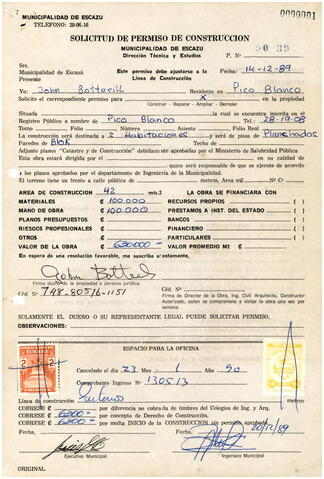 MUNICIPALIDAD DE ESCAZU
TELEFONO: 28-06-16
0000001
SOLICITUD DE PERMISO DE CONSTRUCCION
MUNICIPALIDAD DE ESCAZU
Dirección Técnica y Estudios
P. Nº 90 89
Sres.
Municipalidad de Escazú
Presente
Este permiso debe ajustarse a la
Línea de Construcción
Fecha 14-12-89
Yo John Botterill Residente en Pico Blanco
Solicito el correspondiente permiso para X en la propiedad
Construir - Reparar - Ampliar - Demoler
Situada la cual se encuentra inscrita en el
Registro Público a nombre de Pico Blanco Tel. 28-19-08
Tomo Folio Número Asiento Folio Real
La construcción será destinada a 2 Habitaciones y será de pisos de
Paredes de Blok
Adjunto planos "Catastro y de Construcción" debidamente aprobadas por el Ministerio de Salubridad Pública
Esta obra estará dirigida por el en su calidad de
quien será responsable de que se ejecute de acuerdo
a los planos aprobados por el departamento de Ingeniería de la Municipalidad.
El terreno tiene un frente a calle pública de metros, Area m2 Fondo
AREA DE CONSTRUCCION 42 mts.2 LA OBRA SE FINANCIARA CON
MATERIALES ₡ 100.000 RECURSOS PROPIOS ( )
MANO DE OBRA ₡ 100.000 PRESTAMOS A INST. DEL ESTADO ( )
PLANOS PRESUPUESTOS ₡ BANCOS ( )
RIESGOS PROFESIONALES ₡ FINANCIERO ( )
OTROS ₡ PARTICULARES ( )
VALOR DE LA OBRA ₡ 630000 VALOR PROMEDIO M2 ₡
En espera de una resolución favorable, me suscribo atentamente,
Firma dueño de la propiedad o persona jurídica
Céd. Nº 748-80516-1151
Céd. Nº
Firma de Director de la Obra, Ing. Civil Arquitecto, Constructor
Autorizado, quien se compromete a visitar la obra una vez por
semana.
SOLAMENTE EL DUEÑO O SU REPRESENTANTE LEGAL PUEDE SOLICITAR PERMISO.
OBSERVACIONES:
ESPACIO PARA LA OFICINA
Cancelado el 23 Mes 1 Año 90
Comprobante Ingreso Nº 130513
Línea de construcción metros
COBRESE ₡ 6200 por diferencia no cobrada de timbres del Colegios de Ing. y Arq.
COBRESE ₡ por concepto de Derecho de Construcción.
COBRESE ₡ 6200 por multa INICIO DE LA CONSTRUCCION sin permiso
20/12/89
Ejecutivo Municipal
Ingeniero Municipal
ORIGINAL